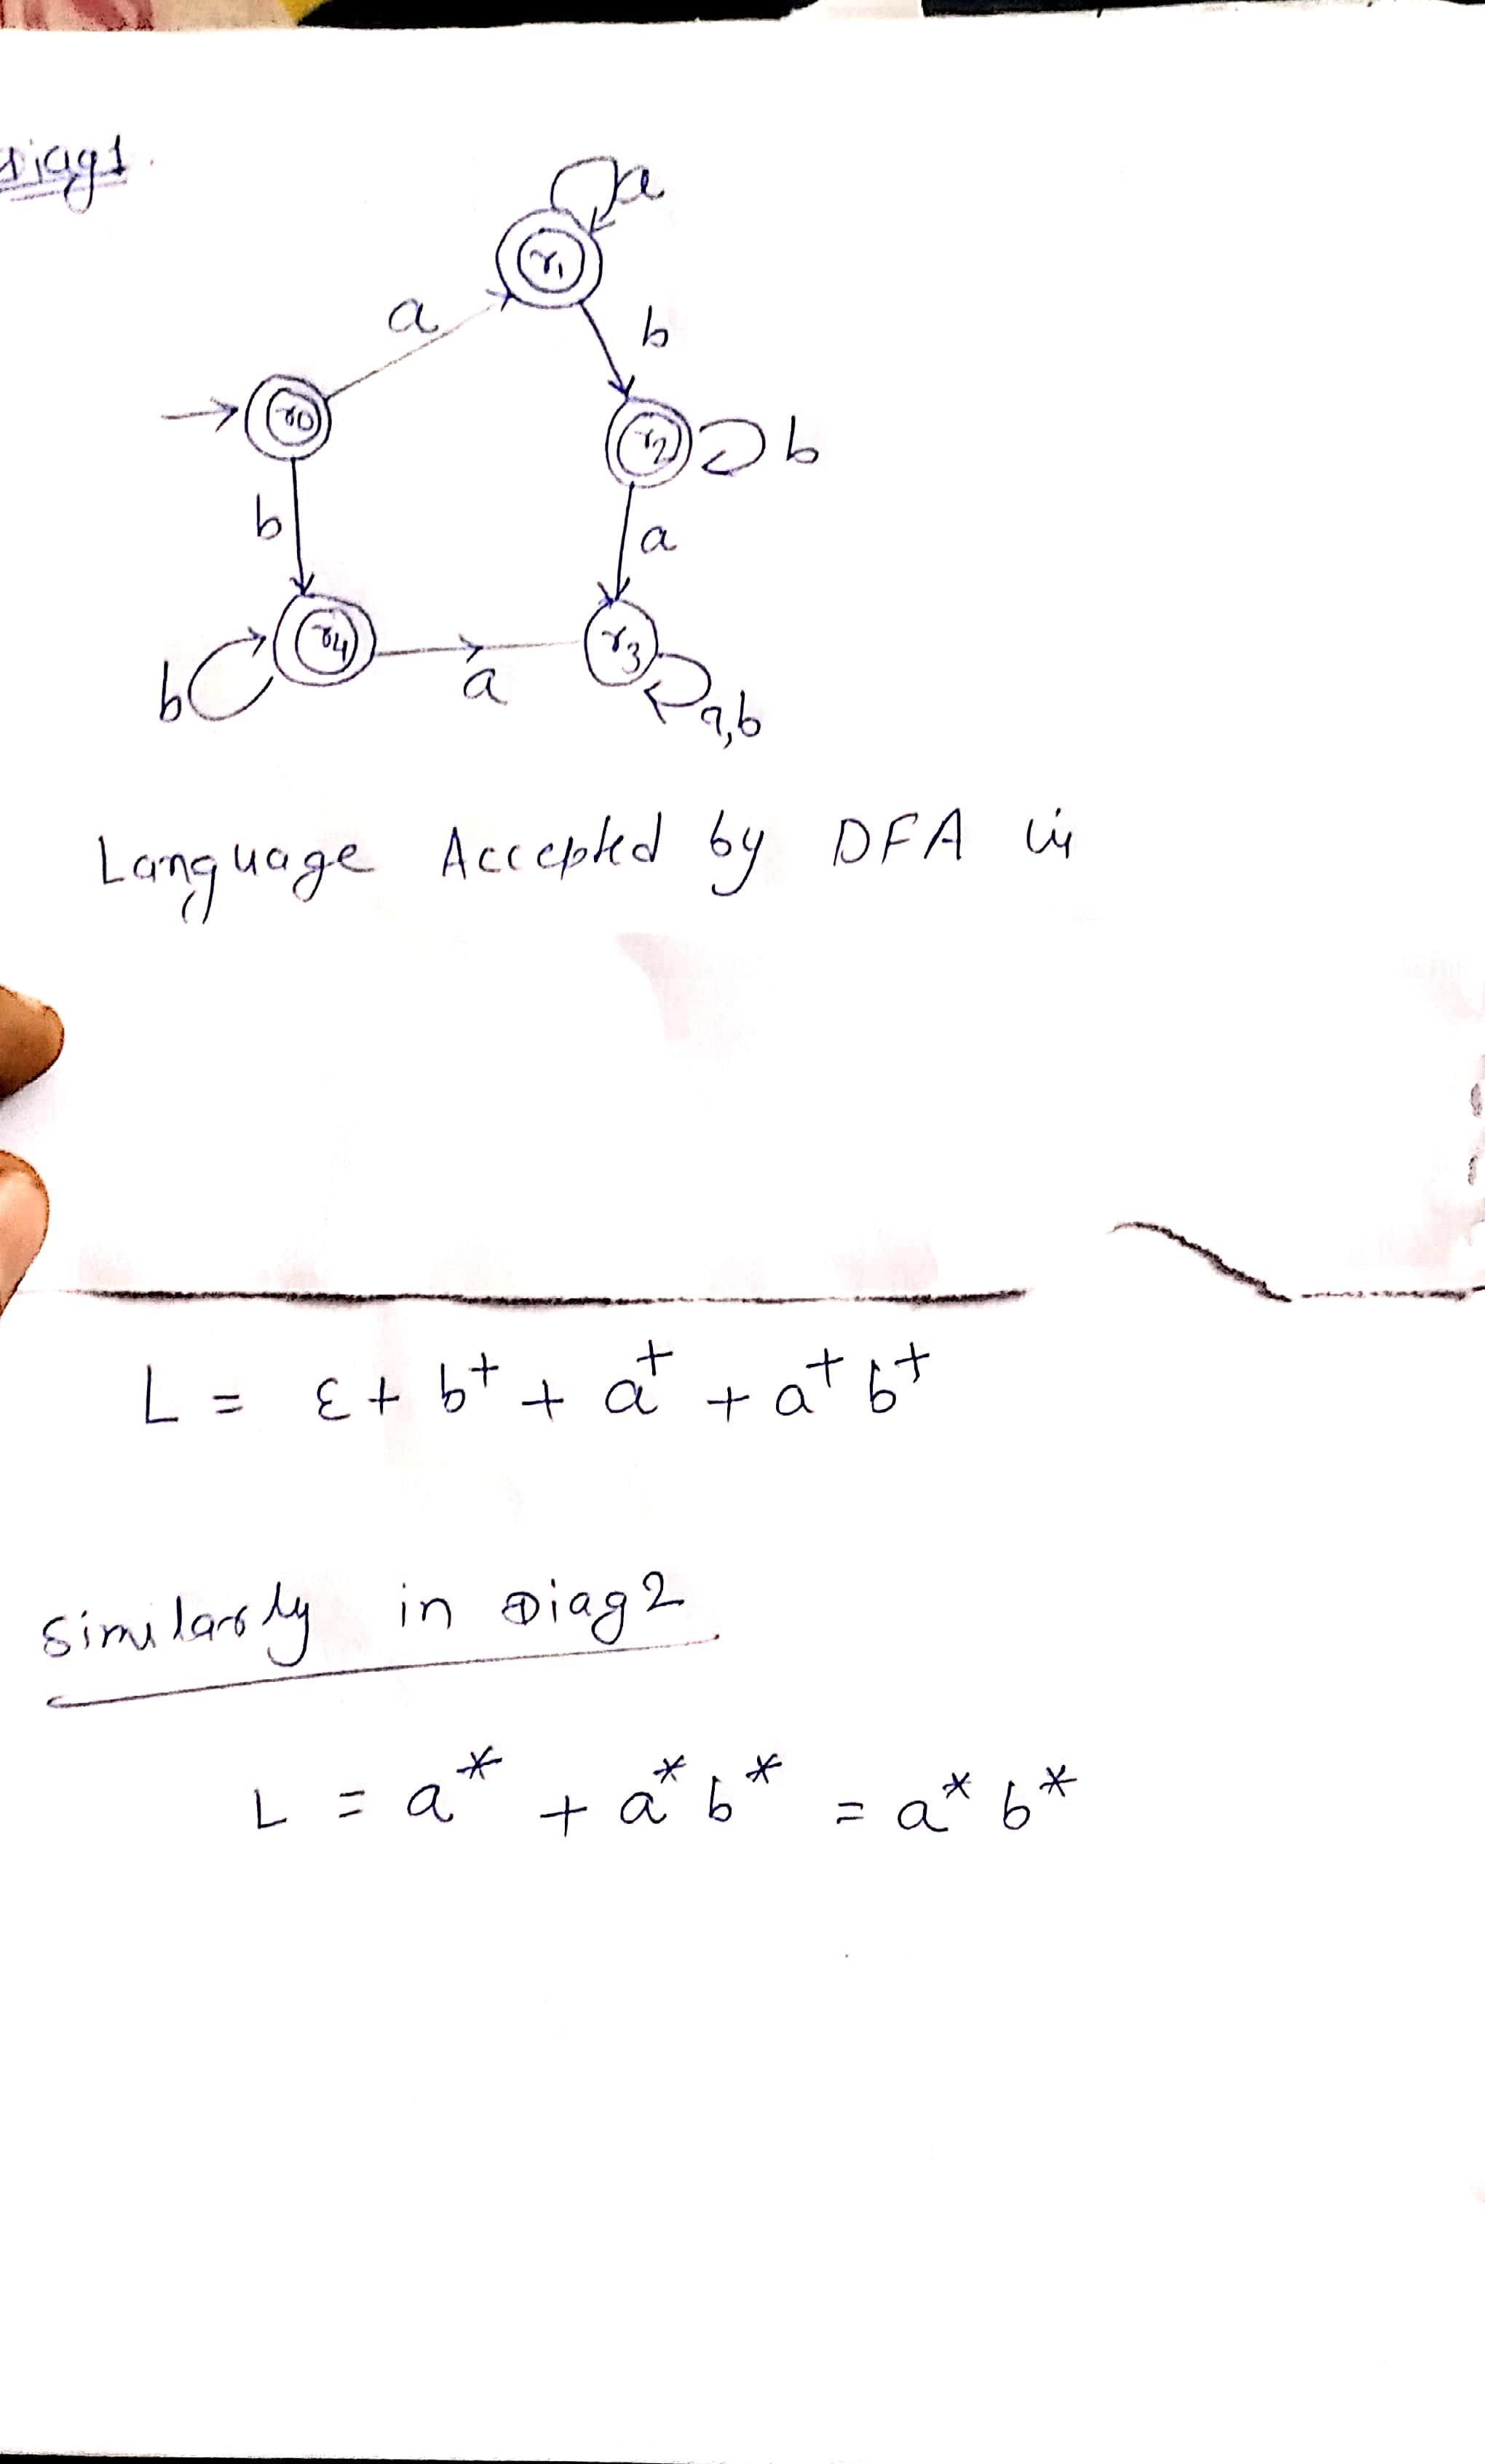 Diag1.
a
r1
a
b
r0
r2
b
b
a
r4
r3
b
a
a,b
Language Accepted by DFA is
L = ε + b⁺ + a⁺ + a⁺b⁺
Similarly in Diag2
L = a* + a*b* = a*b*